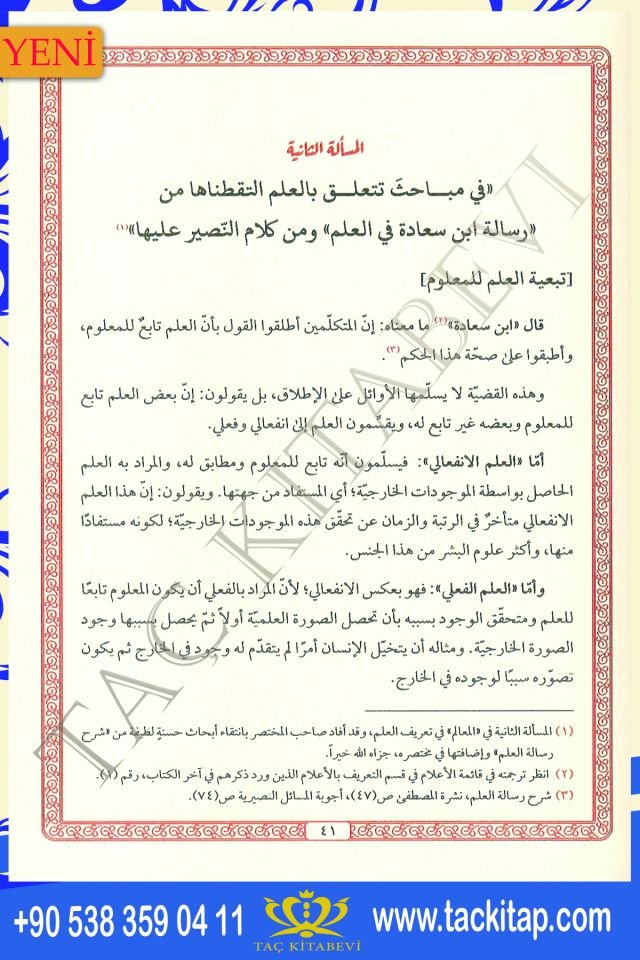 YENİ
المسألة الثانية
«في مباحثَ تتعلق بالعلم التقطناها من
«رسالة ابن سعادة في العلم» ومن كلام النّصير عليها»(١)
[تبعية العلم للمعلوم]
قال «ابن سعادة»(٢) ما معناه: إنّ المتكلّمين أطلقوا القول بأنّ العلم تابعٌ للمعلوم،
وأطبقوا على صحّة هذا الحكم(٣).
وهذه القضيّة لا يسلّمها الأوائل على الإطلاق، بل يقولون: إنّ بعض العلم تابع
للمعلوم وبعضه غير تابع له، ويقسِّمون العلم إلى انفعالي وفعلي.
أمّا «العلم الانفعالي»: فيسلّمون أنّه تابع للمعلوم ومطابق له، والمراد به العلم
الحاصل بواسطة الموجودات الخارجيّة؛ أي المستفاد من جهتها. ويقولون: إنّ هذا العلم
الانفعالي متأخرٌ في الرتبة والزمان عن تحقّق هذه الموجودات الخارجيّة؛ لكونه مستفادًا
منها، وأكثر علوم البشر من هذا الجنس.
وأمّا «العلم الفعلي»: فهو بعكس الانفعالي؛ لأنّ المراد بالفعلي أن يكون المعلوم تابعًا
للعلم ومتحقّق الوجود بسببه بأن تحصل الصورة العلميّة أولاً ثمّ يحصل بسببها وجود
الصورة الخارجيّة. ومثاله أن يتخيّل الإنسان أمرًا لم يتقدّم له وجود في الخارج ثم يكون
تصوّره سببًا لوجوده في الخارج.
(١) المسألة الثانية في «المعالم» في تعريف العلم، وقد أفاد صاحب المختصر بانتقاء أبحاث حسنةٍ لطيفة من «شرح
رسالة العلم» وإضافتها في مختصره، جزاه الله خيراً.
(٢) انظر ترجمته في قائمة الأعلام في قسم التعريف بالأعلام الذين ورد ذكرهم في آخر الكتاب، رقم (١).
(٣) شرح رسالة العلم، نشرة المصطفى ص(٤٧)، أجوبة المسائل النصيرية ص(٧٤).
٤١
TAÇ KITABEVI
+90 538 359 04 11
TAÇ KİTABEVİ
www.tackitap.com